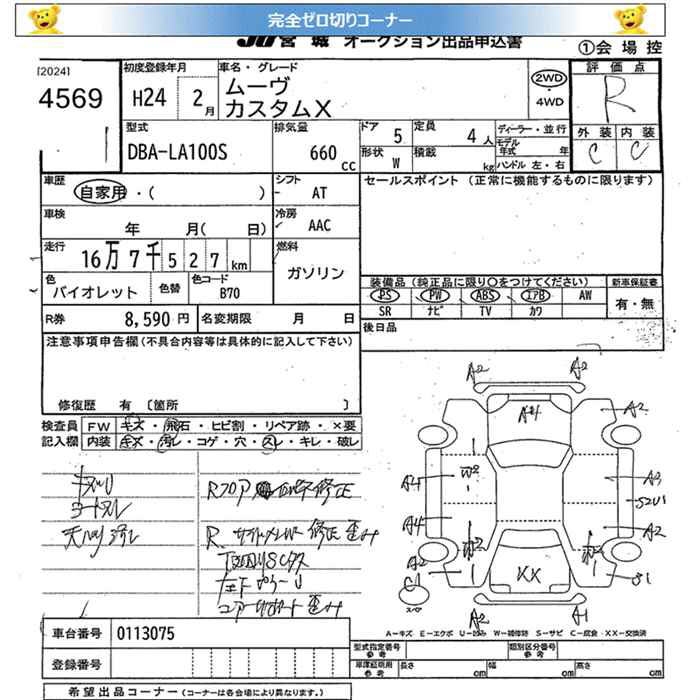 完全ゼロ切りコーナー
JU 宮城 オークション出品申込書
①会場控
[2024]
4569
初度登録年月
H24 2月
車名・グレード
ムーヴ
カスタムX
2WD
・
4WD
評価点
R
外装 内装
C C
型式
DBA-LA100S
排気量
660 cc
ドア 5
定員 4人
形状 W
積載 kg
ディーラー・並行
モデル年式 年
ハンドル 左・右
車歴
自家用・( )
シフト
AT
セールスポイント (正常に機能するものに限ります)
車検
年 月( 日)
冷房
AAC
走行
16万7千527km
燃料
ガソリン
色
バイオレット
色替
色コード
B70
装備品(純正品に限り○をつけてください)
PS PW ABS エアB AW
SR ナビ TV カワ
新車保証書
有・無
R券 8,590円
名変期限 月 日
後日品
注意事項申告欄(不具合内容等は具体的に記入して下さい)
修復歴 有 〔箇所 〕
検査員記入欄
FW キズ・飛石・ヒビ割・リペア跡・×要
内装 キズ・汚レ・コゲ・穴・スレ・キレ・破レ
A2 A2
A4
A2
W2
A4
A3
A4
A2
W2
W2
A2
XX
S1
A2 A1
スペア
A=キズ E=エクボ U=凹み W=補修跡 S=サビ C=腐食 XX=交換済
車台番号 0113075
登録番号
型式指定番号 参考
類別区分番号 参考
車庫証明用 参考
長さ cm 幅 cm 高さ cm
希望出品コーナー(コーナーは各会場により異なります。)